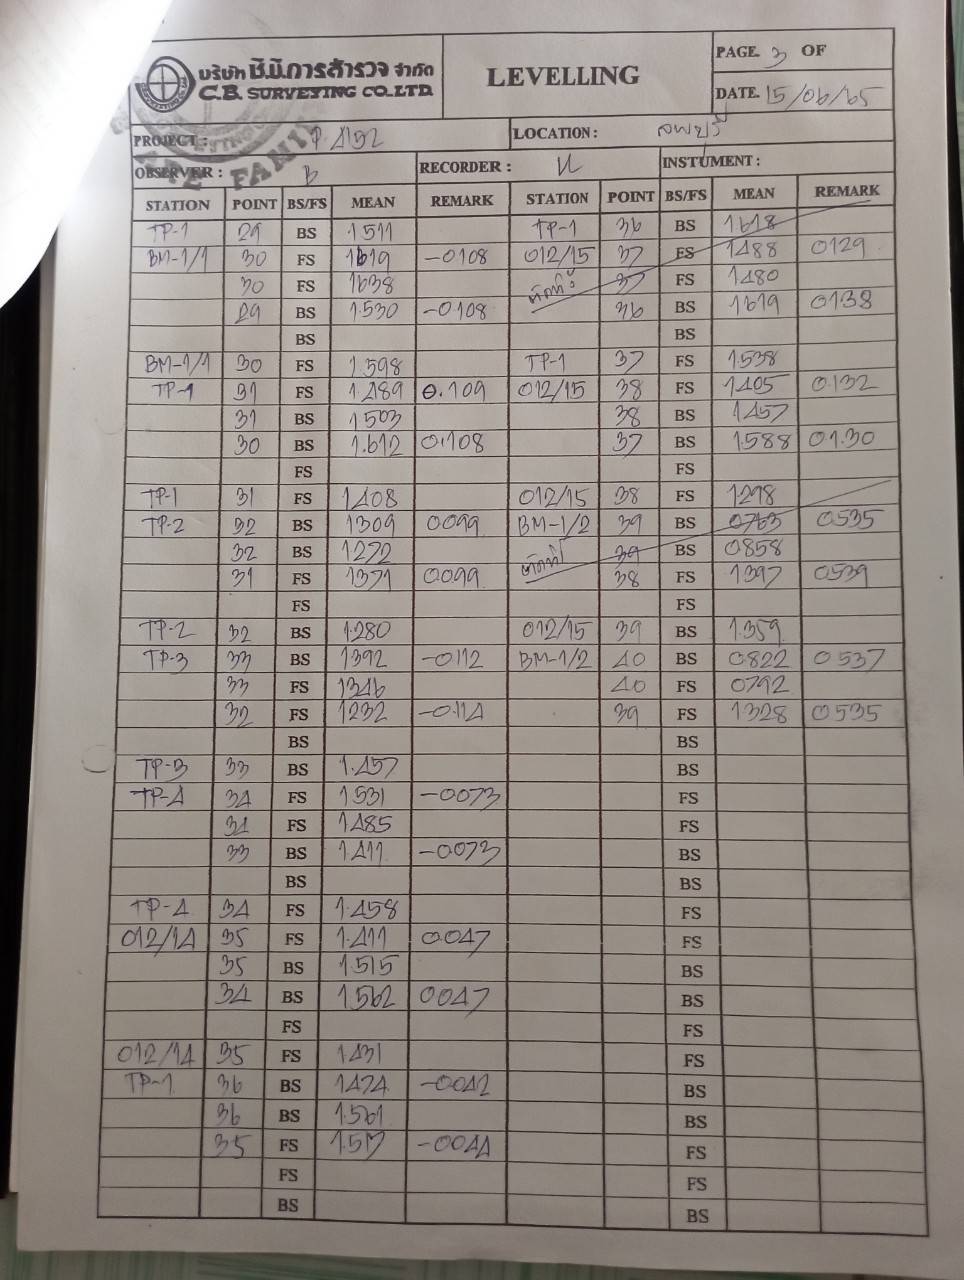 บริษัท ซี.บี.การสำรวจ จำกัด
C.B. SURVEYING CO.,LTD.
LEVELLING
PAGE. 3 OF
DATE. 15/06/65
PROJECT : P.4152
LOCATION : ลพบุรี
OBSERVER : B RECORDER : INSTUMENT :
STATION POINT BS/FS MEAN REMARK STATION POINT BS/FS MEAN REMARK
TP-1 29 BS 1.511 TP-1 36 BS 1.618
BM-1/1 30 FS 1619 -0108 012/15 37 FS 1488 0129
30 FS 1638 37 FS 1480
29 BS 1.530 -0.108 36 BS 1619 0138
BS BS
BM-1/1 30 FS 1598 TP-1 37 FS 1.538
TP-1 31 FS 1.489 0.109 012/15 38 FS 1405 0.132
31 BS 1503 38 BS 1457
30 BS 1.612 0.108 37 BS 1588 01.30
FS FS
TP-1 31 FS 1408 012/15 38 FS 1298
TP-2 32 BS 1309 0099 BM-1/2 39 BS 0763 0535
32 BS 1272 39 BS 0858
31 FS 1371 0099 38 FS 1397 0539
FS FS
TP-2 32 BS 1.280 012/15 39 BS 1.359
TP-3 33 BS 1392 -0112 BM-1/2 40 BS 0822 0537
33 FS 1346 40 FS 0792
32 FS 1232 -0114 39 FS 1328 0535
BS BS
TP-3 33 BS 1.457 BS
TP-4 34 FS 1531 -0073 FS
34 FS 1485 FS
33 BS 1411 -0073 BS
BS BS
TP-4 34 FS 1.458 FS
012/14 35 FS 1.411 0047 FS
35 BS 1515 BS
34 BS 1562 0047 BS
FS FS
012/14 35 FS 1.431 FS
TP-1 36 BS 1474 -0042 BS
36 BS 1.561 BS
35 FS 1.517 -0044 FS
FS FS
BS BS